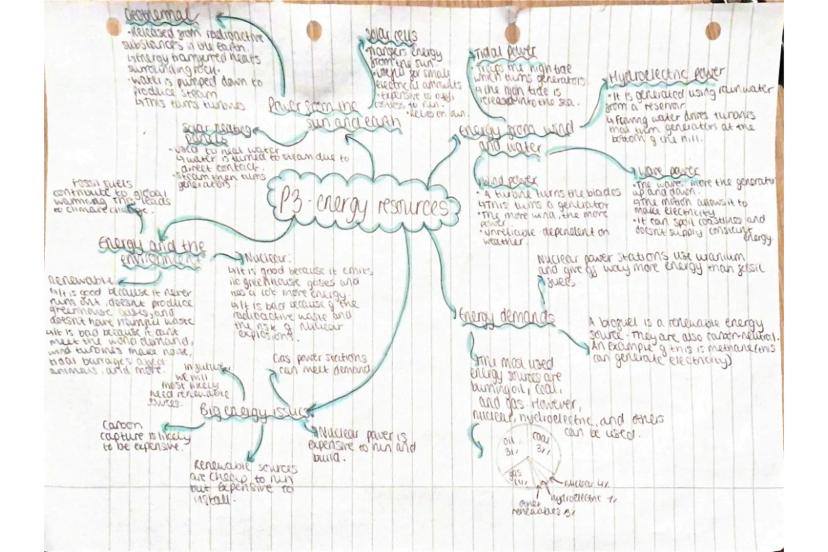 P3 - energy resources
Power from the
sun and earth
Geothermal
• Released from radioactive
substances in the earth.
↳ Energy transferred heats
surrounding rock.
• Water is pumped down to
produce steam
↳ This turns turbines
Solar cells
energy
from the sun
• Useful for small
electrical amounts
• Expensive to
to run
• Relies on sun.
Solar heating
panels
• Used to heat water
↳ water is turned to steam due to
direct contact.
• Steam then turns
generators.
Energy from wind
and water
Tidal power
the high tide
which turns generators
↳ the high tide is
released into the sea.
Hydroelectric power
• It is generated using rainwater
from a reservoir
↳ Flowing water drives turbines
that turn generators at the
bottom of the hill.
Wind power
• A turbine turns the blades
↳ This turns a generator
• The more wind, the more
power
• unreliable dependent on
weather.
Wave power
• The waves move the generator
up and down.
↳ The motion allows it to
make electricity
• It can spoil coastlines and
doesn't supply consistent
energy
Energy demands
Nuclear power stations use uranium
and give off way more energy than fossil
fuels
A biofuel is a renewable energy
source. They are also carbon-neutral.
An example of this is methane (this
can generate electricity)
The most used
energy sources are
burning oil, coal,
and gas. However,
nuclear, hydroelectric, and others
can be used.
oil
coal
gas
nuclear 4%
hydroelectric
other
renewables
Big energy issues
Gas power stations
can meet demand
Nuclear power is
expensive to run and
build.
Renewable sources
are cheap to run
but expensive to
install.
Carbon
capture is likely
to be expensive.
In future
we will
most likely
need renewable
sources.
Energy and the
environment
Fossil fuels
contribute to global
warming. This leads
to climate change.
Nuclear:
↳ It is good because it emits
no greenhouse gases and
has a lot more energy
↳ It is bad because of the
radioactive waste and
the risk of nuclear
explosions.
Renewable:
↳ It is good because it never
runs out, doesn't produce
greenhouse gases, and
doesn't have harmful waste
↳ It is bad because it can't
meet the world demand,
wind turbines make noise,
tidal barrages affect
animals, and more.